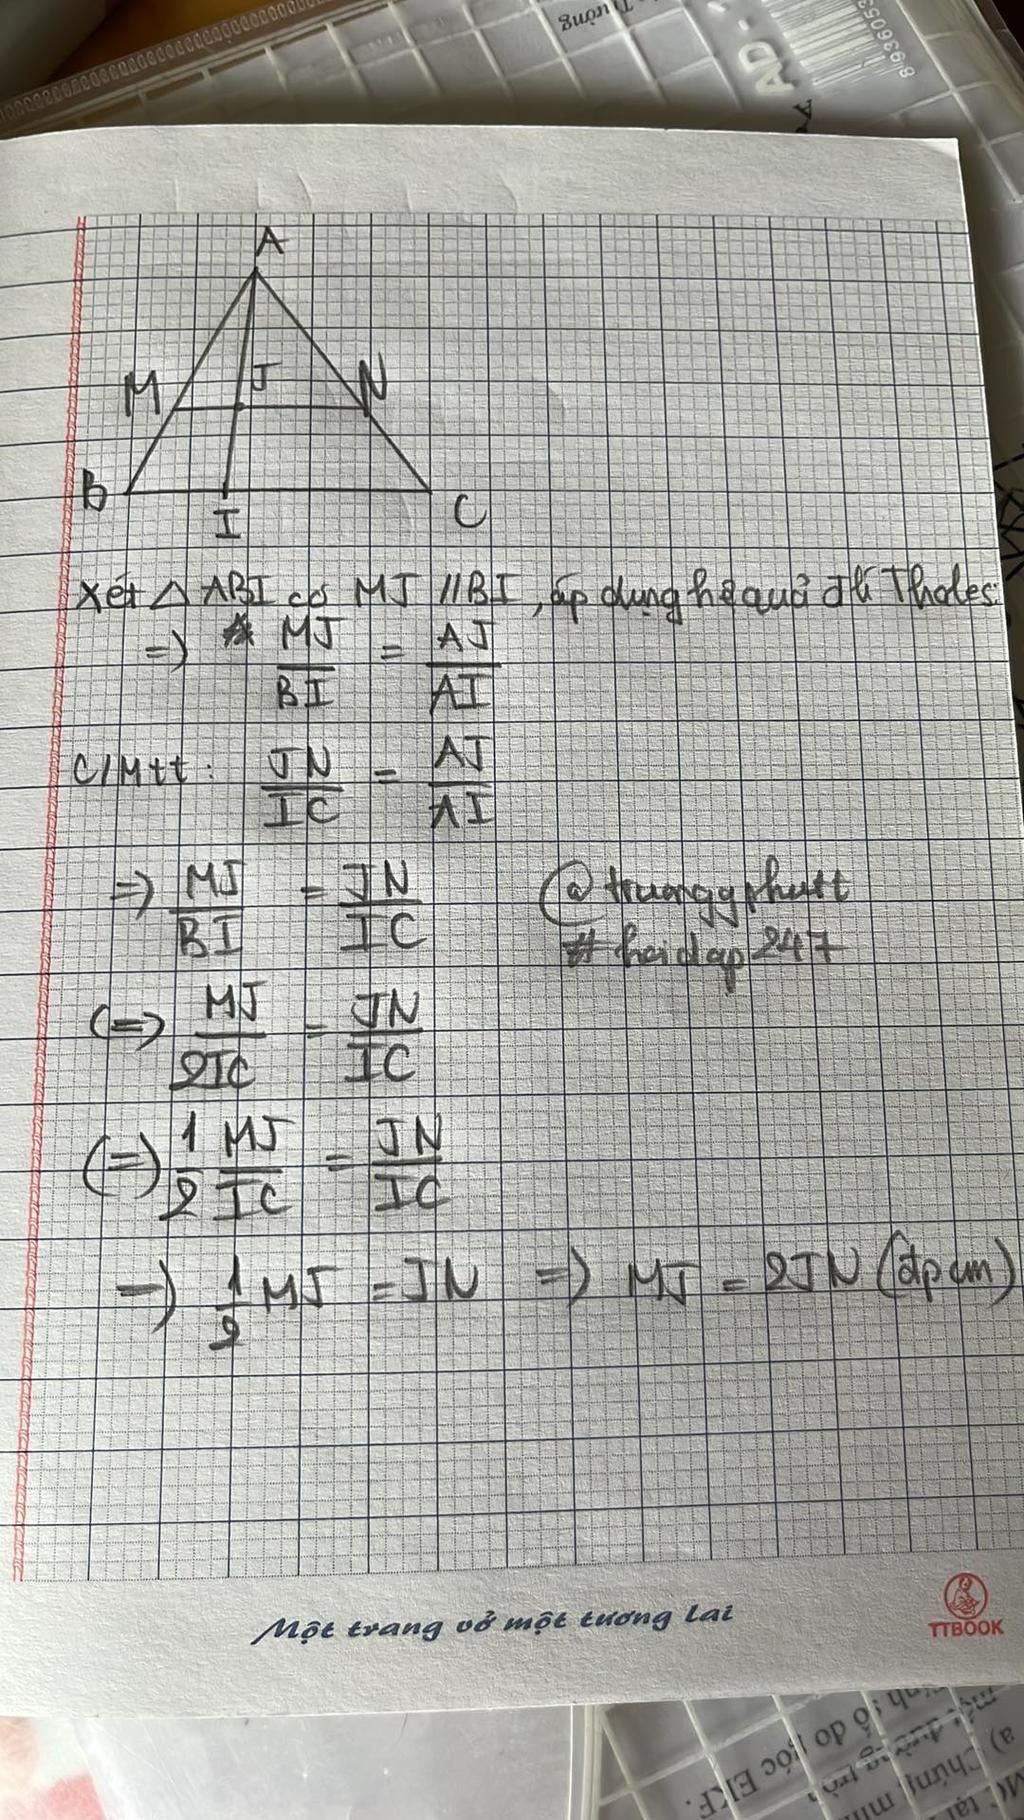 Tường
AD -
8936053
A
M
J
N
B
I
C
Xét △ ABI có MJ // BI, áp dụng hệ quả đlí Thales:
=> MJ/BI = AJ/AI
C/Mtt: JN/IC = AJ/AI
=> MJ/BI = JN/IC
@truonggphutt
#hoidap247
(=) MJ/2IC = JN/IC
(=) 1/2 MJ/IC = JN/IC
=> 1/2 MJ = JN => MJ = 2JN (đpcm)
Một trang vở một tương lai
TTBOOK
số đo góc EKF.
a) Chứng minh